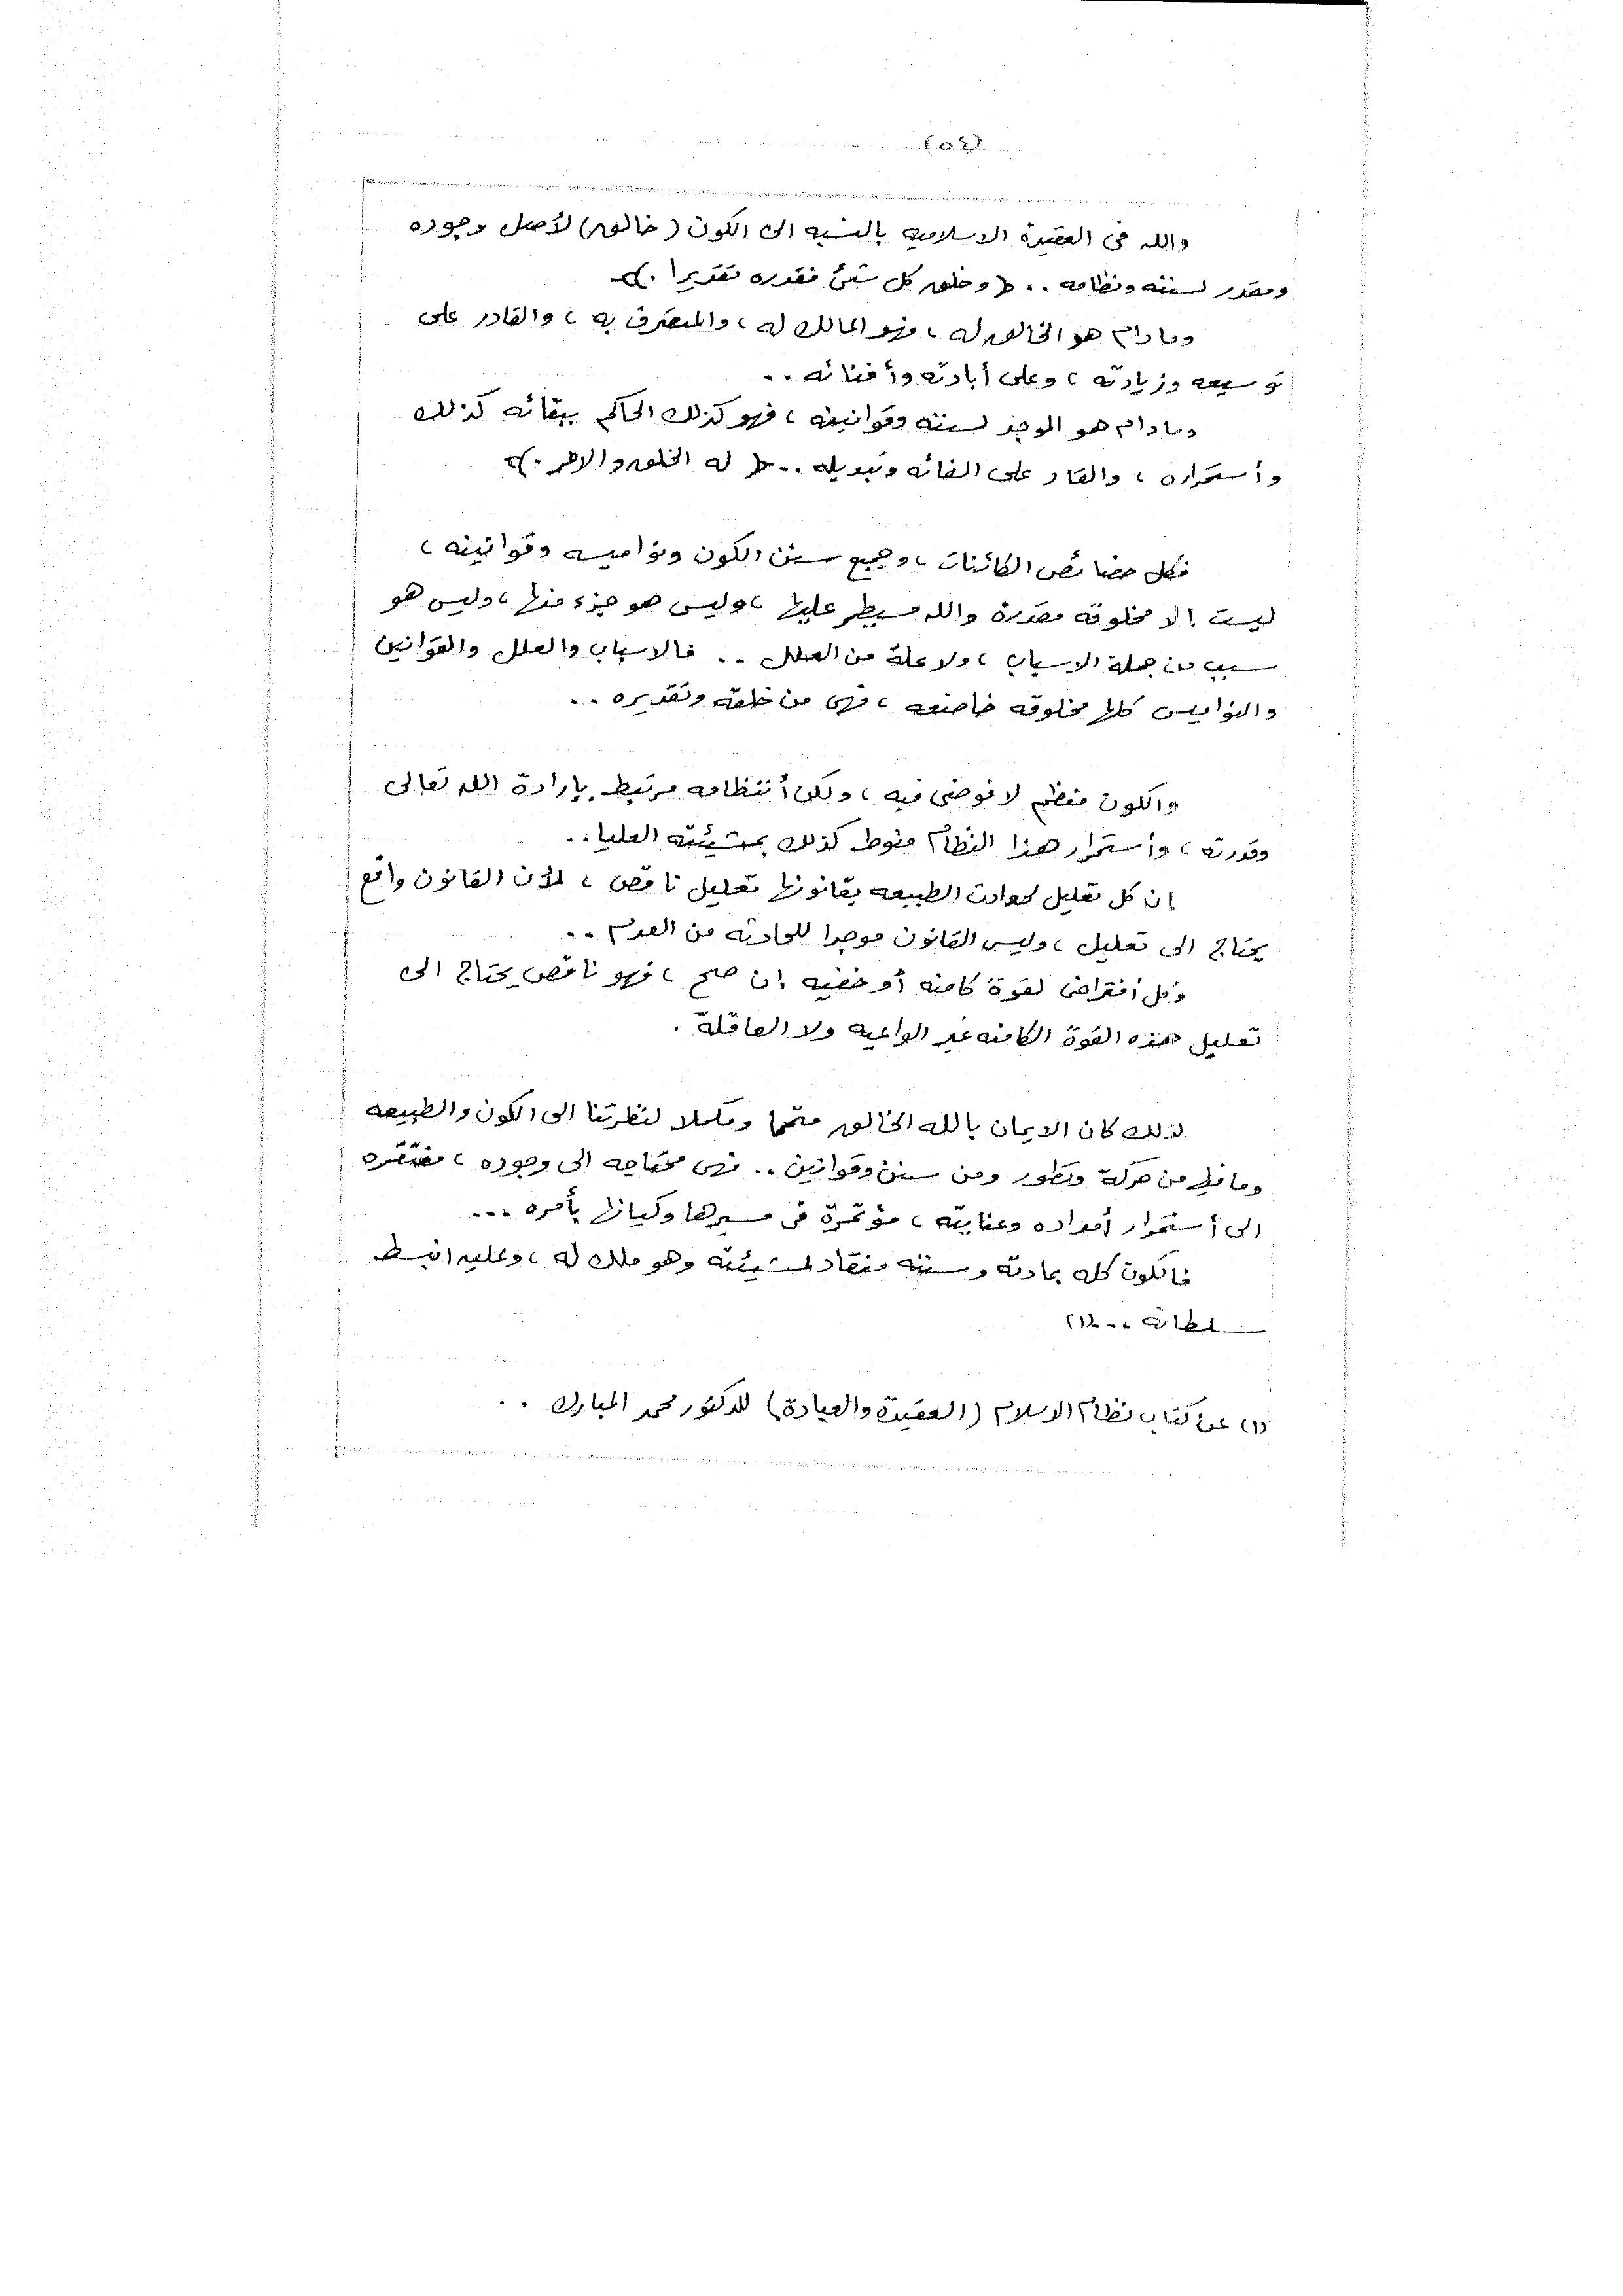 (٥٤)
والله فى العقيدة الاسلاميه بالنسبه الى الكون (خالق) لأصل وجوده
ومقدر لسننه ونظامه .. ﴿ وخلق كل شئ فقدره تقديرا . ﴾
وما دام هو الخالق له ، فهو المالك له ، والمتصرف به ، والقادر على
توسيعه وزيادته ، وعلى أبادته وأفنائه ..
وما دام هو الموجد لسننه وقوانينه ، فهو كذلك الحاكم ببقائه كذلك
وأستمراره ، والقادر على الغائه وتبديله .. ﴿ له الخلق والامر . ﴾
فكل خصائص الكائنات ، وجميع سنن الكون ونواميسه وقوانينه ،
ليست إلا مخلوقه مقدرة والله مسيطر عليها ، وليس هو جزء منها ، وليس هو
سبب من جملة الاسباب ، ولا علة من العلل .. فالاسباب والعلل والقوانين
والنواميس كلها مخلوقه خاضعه ، فهى من خلقه وتقديره ..
والكون منظم لا فوضى فيه ، ولكن أنتظامه مرتبط بإرادة الله تعالى
وقدرته ، وأستمرار هذا النظام منوط كذلك بمشيئته العليا ..
إن كل تعليل لحوادث الطبيعه بقانونها تعليل ناقص ، لأن القانون واقع
يحتاج الى تعليل ، وليس القانون موجدا للحادثه من العدم ..
وكل أفتراض لقوة كامنه أو خفيه إن صح ، فهو ناقص يحتاج الى
تعليل هذه القوة الكامنه غير الواعيه ولا العاقلة .
لذلك كان الايمان بالله الخالق متمما ومكملا لنظرتنا الى الكون والطبيعه
وما فيها من حركة وتطور ومن سنن وقوانين .. فهى محتاجه الى وجوده ، مفتقره
الى أستمرار أمداده وعنايته ، مؤتمرة فى مسيرها وكيانها بأمره ...
فالكون كله بمادته وسننه منقاد لمشيئته وهو ملك له ، وعليه انبسط
سلطانه ... (١)
(١) عن كتاب نظام الاسلام (العقيدة والعبادة) للدكتور محمد المبارك ..